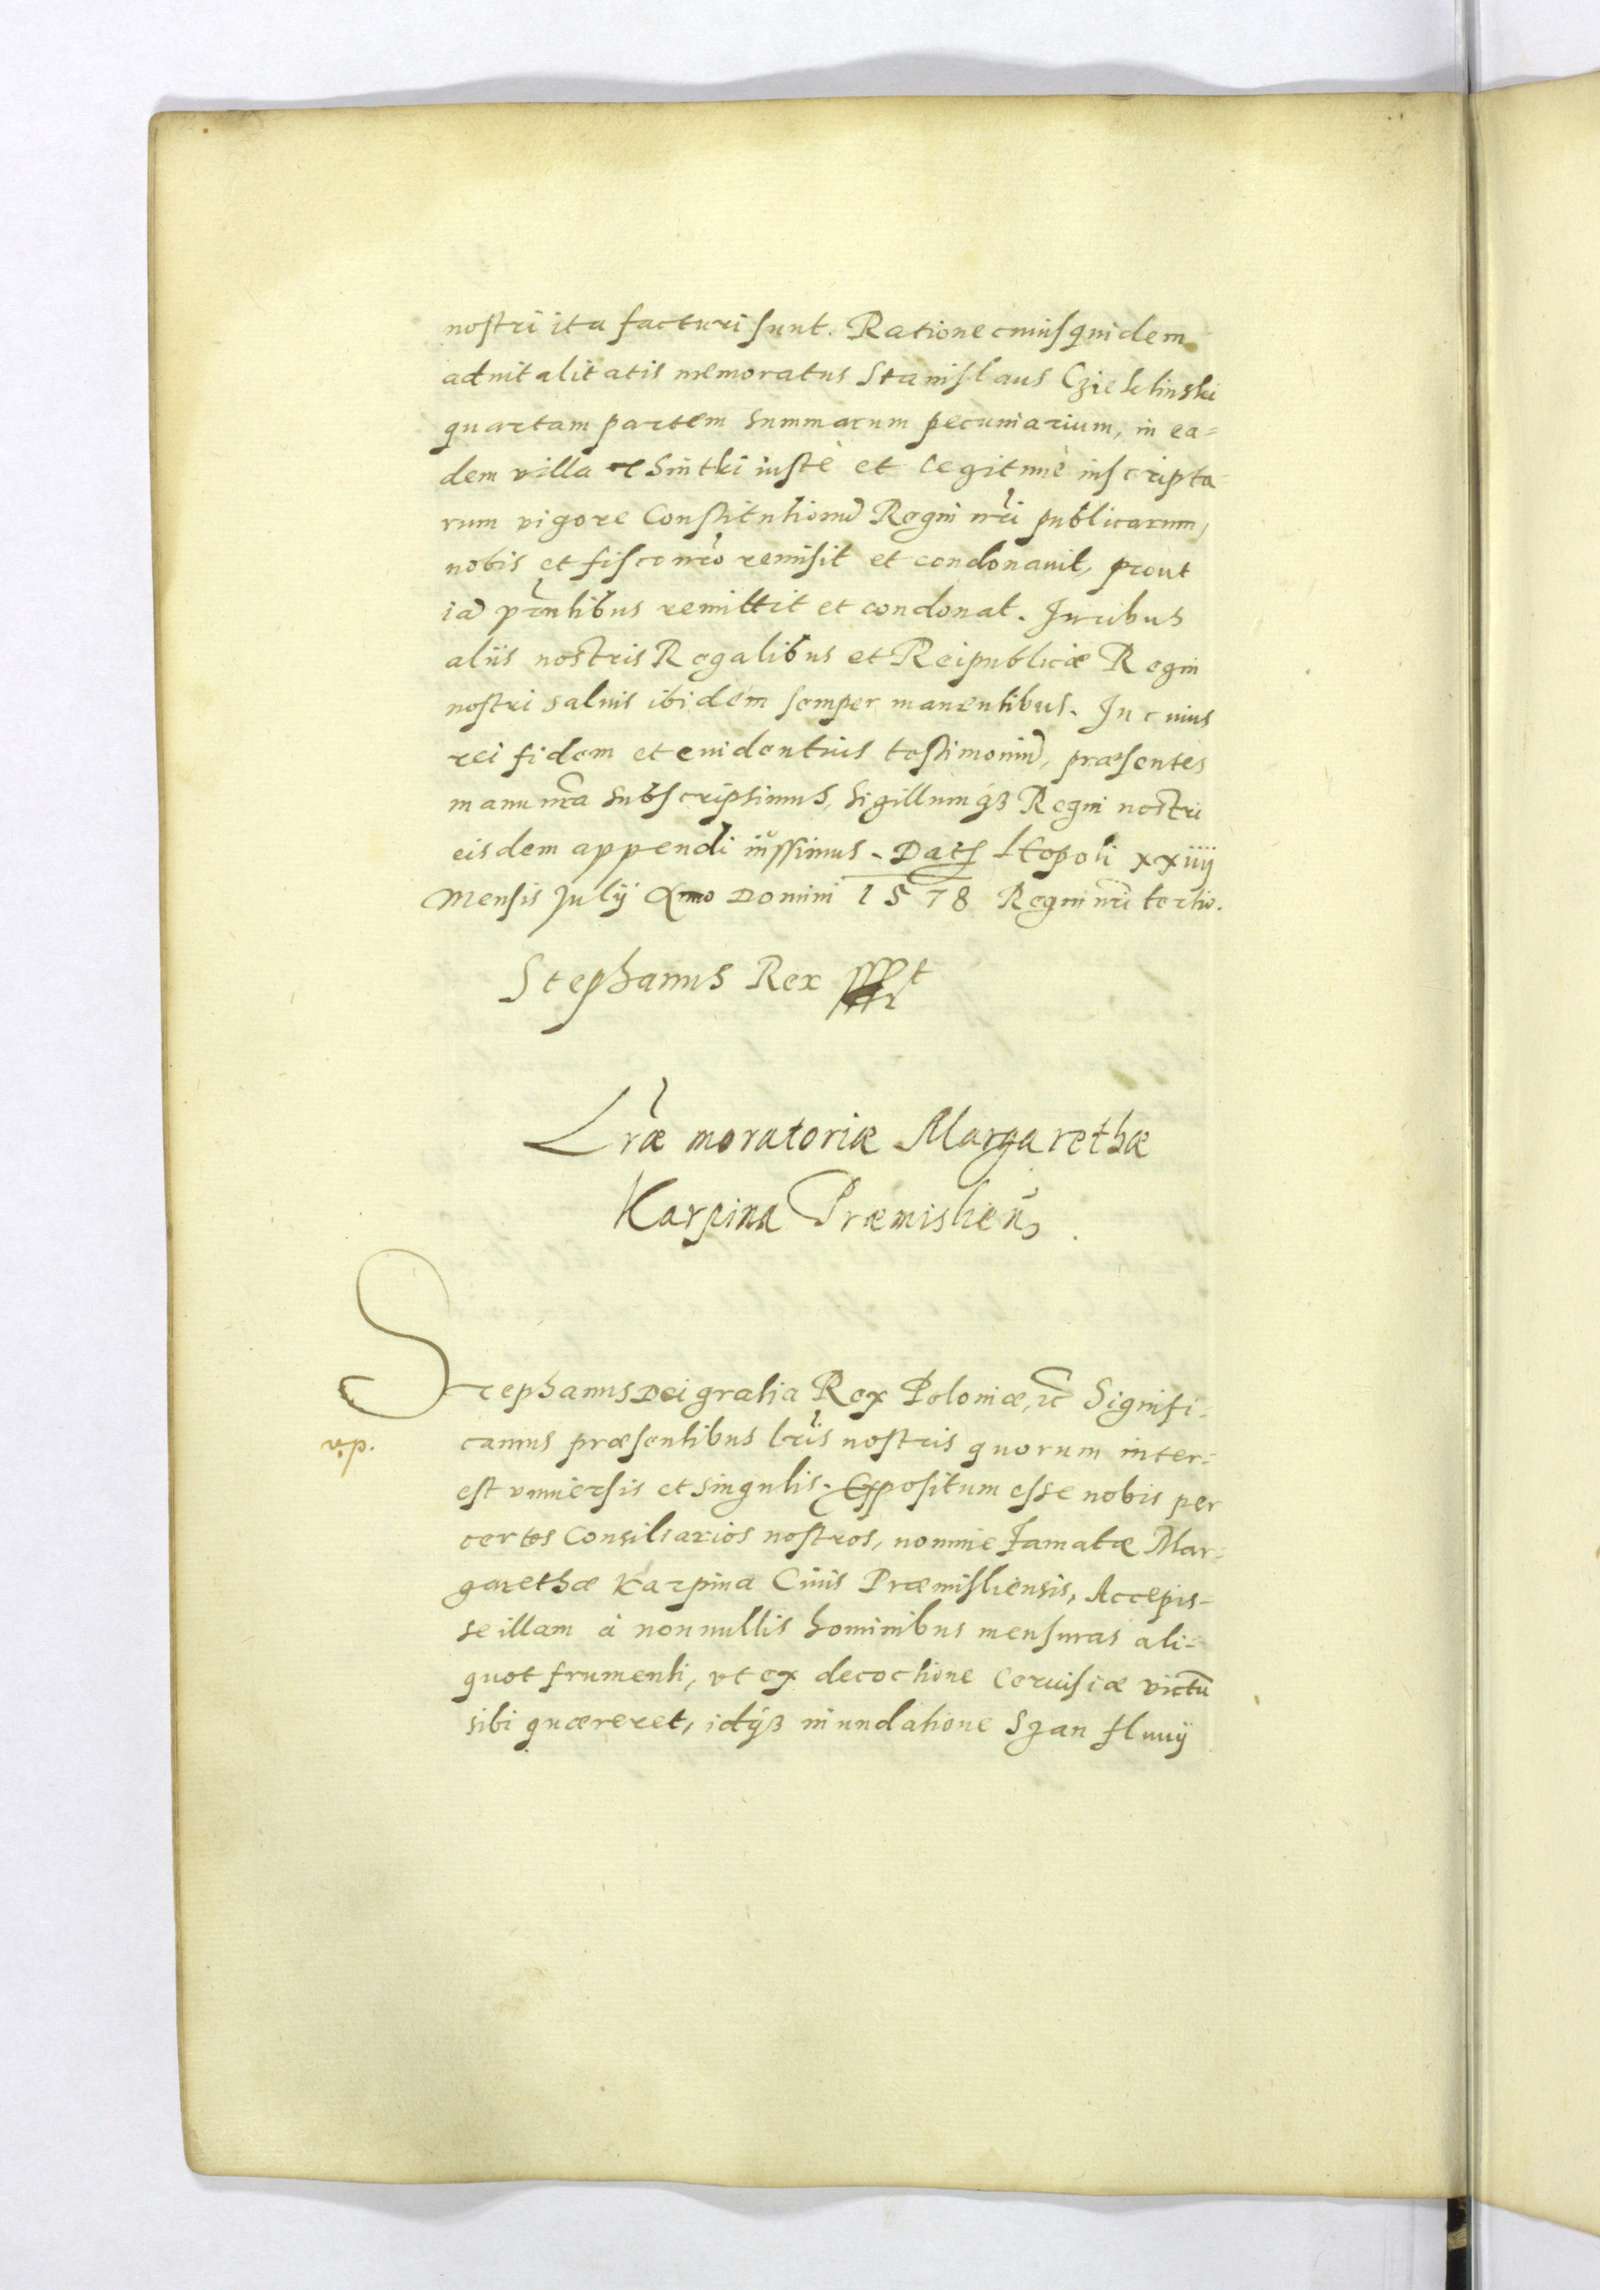 nostri ita facturi sunt. Ratione cuiusquidem
aduitalitatis memoratus Stanislaus
quartam partem summarum pecuniarium, in ea=
dem villa Sintki iustè et legitimè inscripta-
rum vigore Constitutionũ Regni nr̃i publicarum,
nobis et fisco nr̃o remisit et condonauit, prout
iã pr̃ntibus remittit et condonat. Iuribus
aliis nostris Regalibus et Reipublicæ Regni
nostri saluis ibidem semper manentibus. In cuius
rei fidem et euidentius testimoniũ, præsentes
manu nr̃a subscripsimus, sigillumq́ꝫ Regni nostri
eisdem appendi iussimus. Datꝫ Leopoli xxiiij
Mensis Julij Anno Domini 1578 Regni nr̃i tertio.
Stephanus Rex sssst
Lr̃æ moratoriæ Margarethæ
Karpina Præmislieñ.
Stephanus Dei gratia Rex Poloniæ, ꝛc̃ Signifi-
v.p.
camus præsentibus lr̃is nostris quorum inter-
est vniuersis et singulis. Expositum esse nobis per
certos Consiliarios nostros, nomine famatæ Mar-
garethæ Karpina Ciuis Præmisliensis, Accepis-
se illam à nonnullis hominibus mensuras ali-
quot frumenti, vt ex decoctione Ceruisiæ victũ
sibi quæreret, idq́ꝫ inundatione Szan fluuij